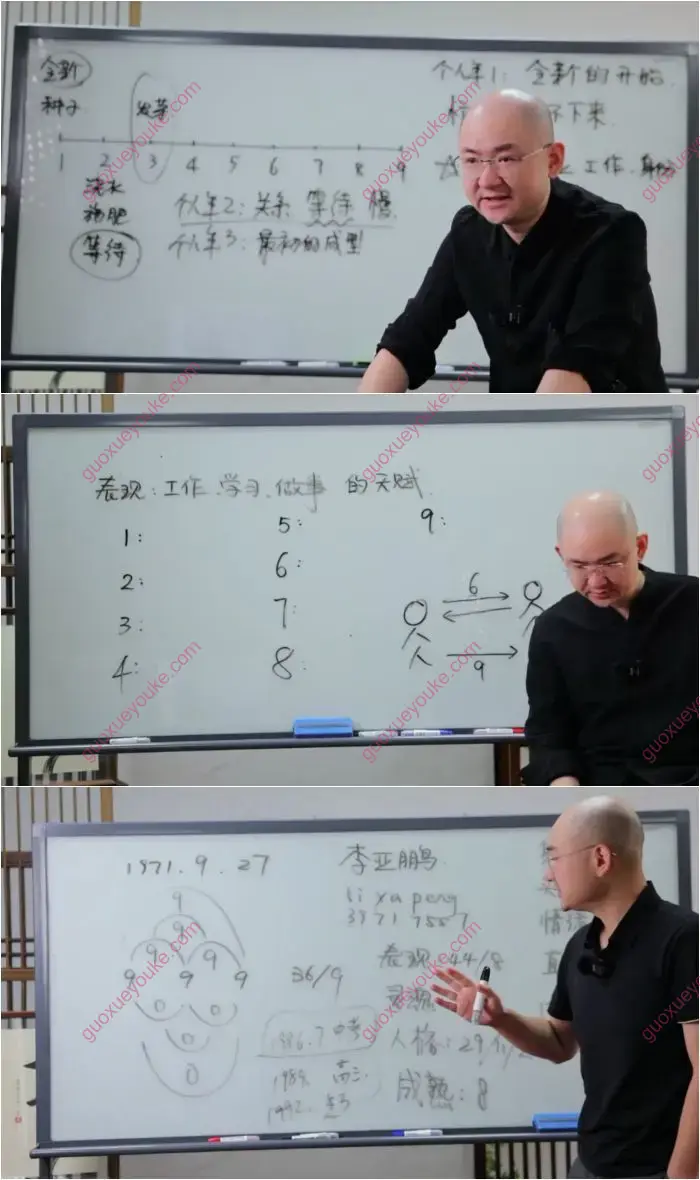 全新
个人年1: 全新的开始
种子 发芽
下来
工作.身份
1 2 3 4 5 6 7 8 9
浇水
施肥
个人年2: 关系 等待 慢
等待
个人年3: 最初的成型
表现: 工作.学习.做事 的天赋
1: 5: 9:
2: 6:
3: 7:
4: 8:
6
9
1971. 9. 27
李亚鹏
li ya peng
9
9
9 9
9 9 9
0 0
0
0
36/9
表现: 44/8
人格: 29
成熟: 8
情绪
1986.7 中考
1989. 高三
guoxueyouke.com
guoxueyouke.com
guoxueyouke.com
guoxueyouke.com
guoxueyouke.com
guoxueyouke.com
guoxueyouke.com
guoxueyouke.com
guoxueyouke.com